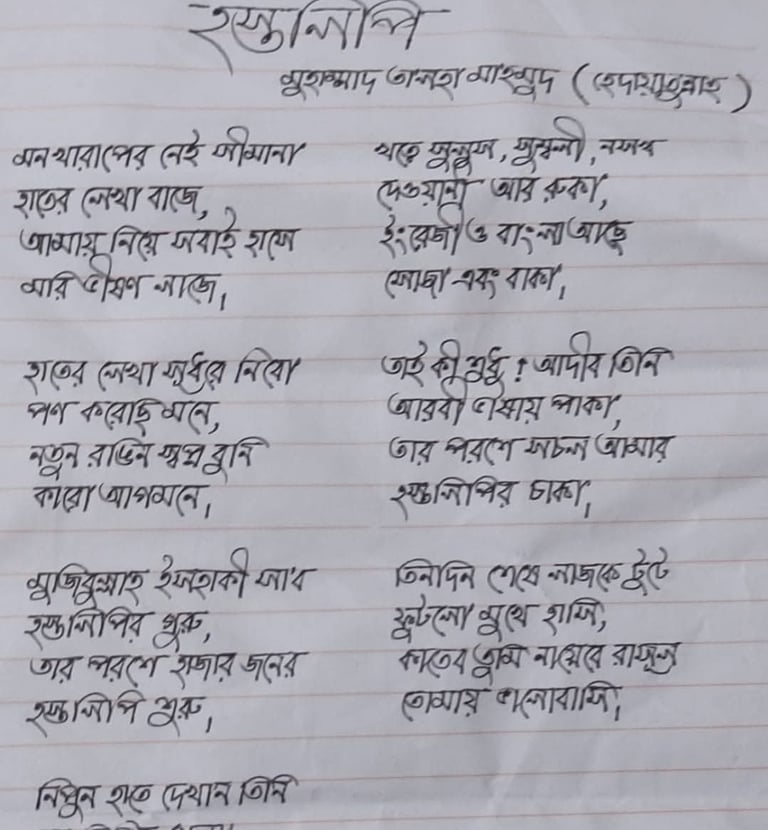 হস্তলিপি
মুহাম্মাদ তালহা মাহমুদ (হেদায়াতুল্লাহ)
মন খারাপের নেই সীমানা
হাতের লেখা বাজে,
আমায় নিয়ে সবাই হাসে
মরি ভীষণ লাজে,
হাতের লেখা সুধরে নিবো
পণ করেছি মনে,
নতুন রাঙিন স্বপ্ন বুনি
কারো আগমনে,
মুজিবুল্লাহ ইসহাকী সা'ব
হস্তলিপির গুরু,
তার পরশে হাজার জনের
হস্তলিপি শুরু,
নিপুন হাতে দেখান তিনি
খতে সুলুস, মুসলী, নসখ
দেওয়ানী আর রুকা,
ইংরেজী ও বাংলা আছে
সোজা এবং বাকা,
তাই কী শুধু? আদীব তিনি
আরবী ভাষায় পাকা,
তার পরশে সচল আমার
হস্তলিপির চাকা,
তিনদিন শেষে লাজকে টুটে
ফুটলো মুখে হাসি,
কাতেব তুমি নায়েবে রাসূল
তোমায় ভালোবাসি,